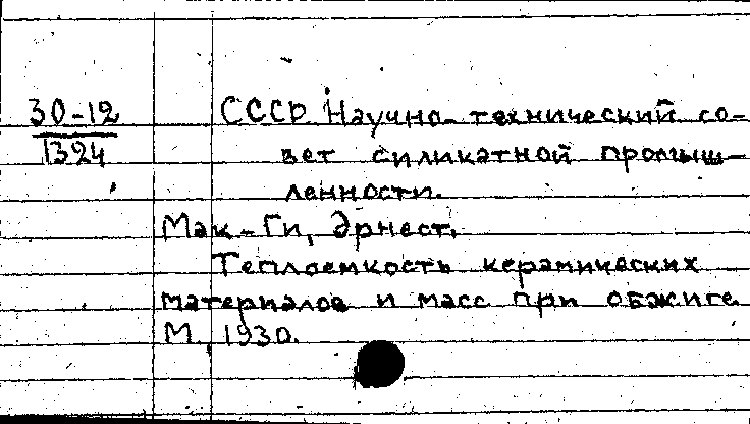 30-12
1324
СССР Научно-технический со-
вет силикатной промыш-
ленности.
Мак-Ги, Эрнест.
Теплоемкость керамических
материалов и масс при обжиге
М., 1930.